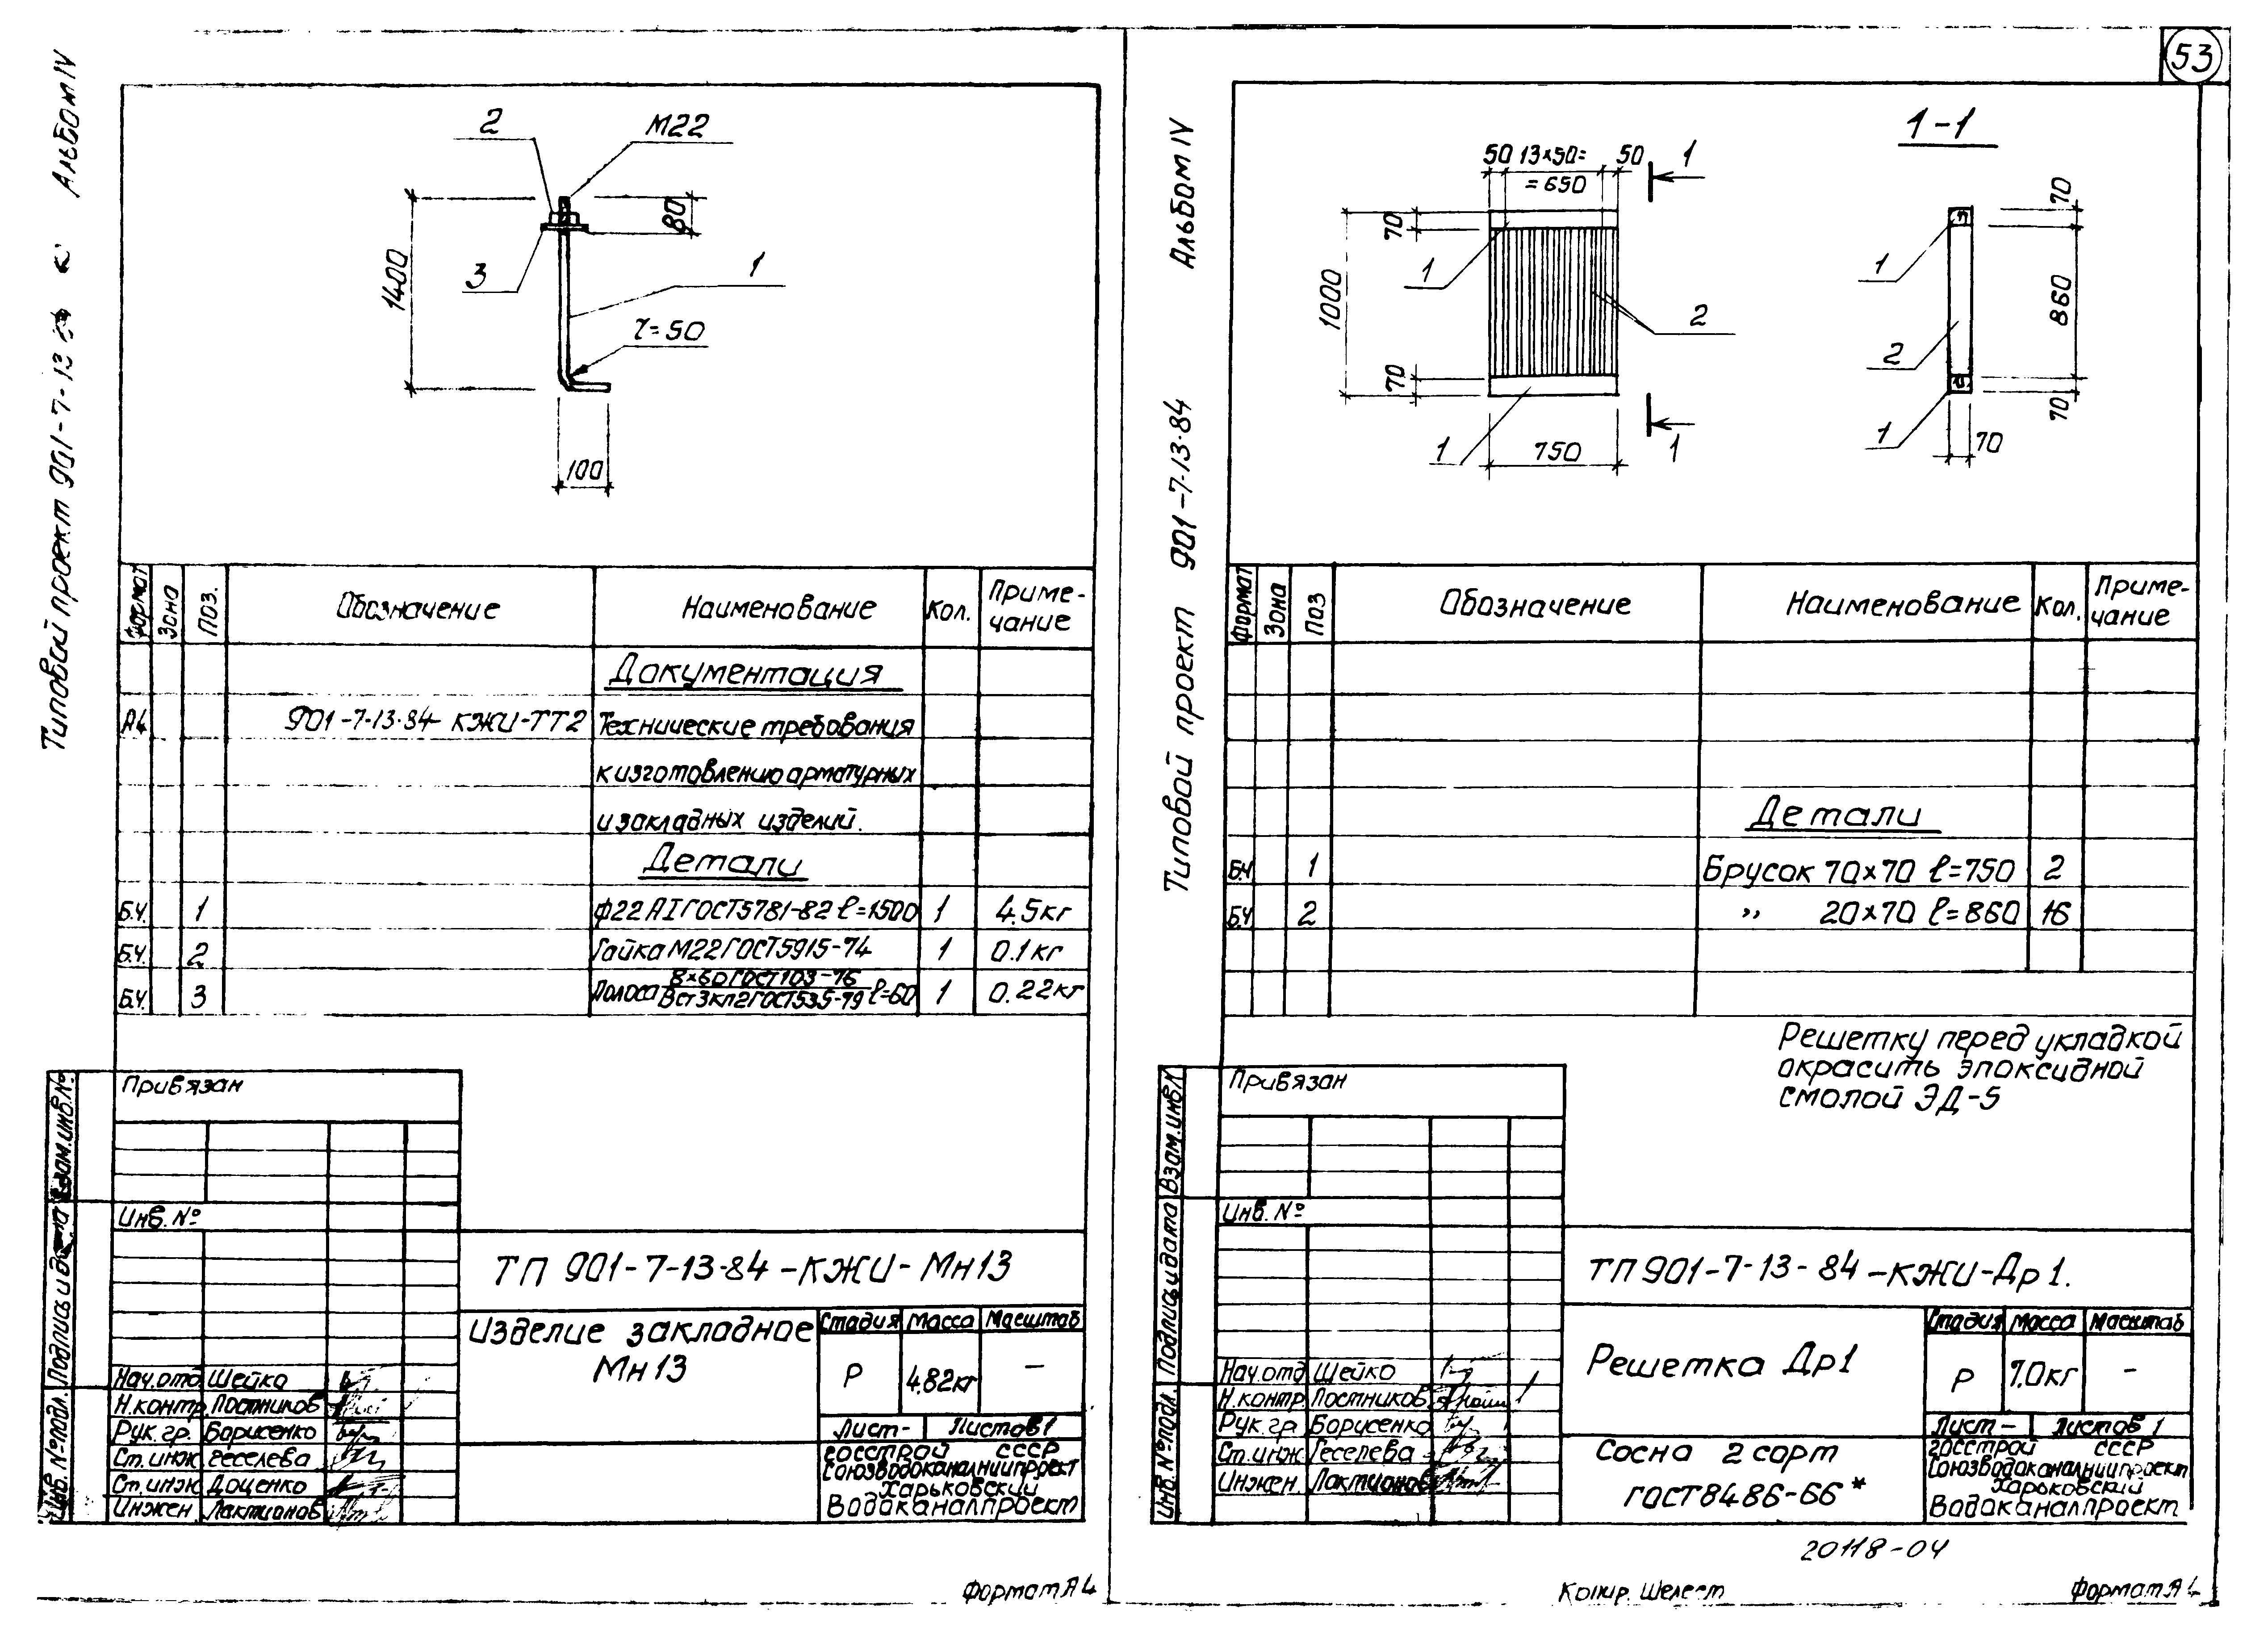 53
Альбом IV
Типовой проект 901-7-13
2
М22
1400
80
3
1
r=50
100
Формат
Зона
Поз.
Обозначение
Наименование
Кол.
Приме-
чание
Документация
А4 901-7-13-84-КЖИ-ТТ2 Технические требования
к изготовлению арматурных
и закладных изделий.
Детали
Б.Ч. 1 ф22 АI ГОСТ5781-82 ℓ=1500 1 4.5кг
Б.Ч. 2 Гайка М22 ГОСТ5915-74 1 0.1кг
Б.Ч. 3 Полоса 8×60 ГОСТ103-76 / Вст3кп2 ГОСТ535-79 ℓ=60 1 0.22кг
Привязан
Инв. №
Взам.инв.№
Подпись и дата
Инв. №подл.
ТП 901-7-13-84-КЖИ-Мн13
Изделие закладное
Мн13
Стадия Масса Масштаб
Р 4.82кг –
Лист- Листов 1
Госстрой СССР
Союзводоканалниипроект
Харьковский
Водоканалпроект
Нач.отд. Шейко
Н.контр. Постников
Рук.гр. Борисенко
Ст.инж. Геселева
Ст.инж. Доценко
Инжен. Лактионов
Формат А4
Альбом IV
Типовой проект 901-7-13-84
50 13×50= 50
=650
1
1-1
70
1000
70
1
2
1
750
1
70
860
70
1
2
1
70
Формат
Зона
Поз
Обозначение
Наименование
Кол.
Приме-
чание
Детали
Б.Ч 1 Брусок 70×70 ℓ=750 2
Б.Ч 2 ,, 20×70 ℓ=860 16
Решетку перед укладкой
окрасить эпоксидной
смолой ЭД-5
Привязан
Инв. №
Взам.инв.№
Подпись и дата
Инв. №подл.
ТП 901-7-13-84-КЖИ-Др1.
Решетка Др1
Стадия Масса Масштаб
Р 7.0кг –
Лист – Листов 1
Сосна 2 сорт
ГОСТ8486-66*
Госстрой СССР
Союзводоканалниипроект
Харьковский
Водоканалпроект
Нач.отд Шейко
Н.контр. Постников
Рук.гр. Борисенко
Ст.инж. Геселева
Инжен. Лактионов
20118-04
Копир. Шелест
Формат А4